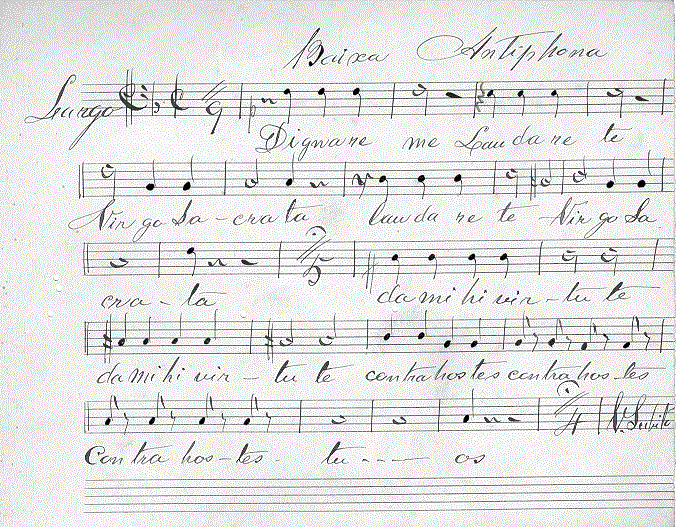 Baixa Antiphona
Largo 9
Dignare me Laudare te
Virgo Sa-crata lauda re te Virgo Sa
cra-ta da mihi vir-tu te
da mihi vir-tu te contra hostes contra hos-tes
Contra hos-tes tu---- os
V. Subito